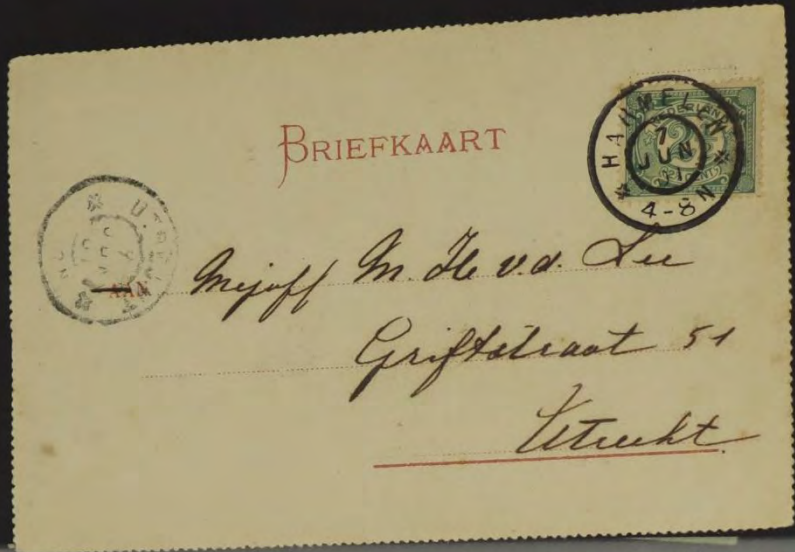 BRIEFKAART
NEDERLAND
HARMELEN
7
JUN
4-8 N
UTRECHT
AAN
Mejuff M. H. v.d. Lee
Griftstraat 51
Utrecht